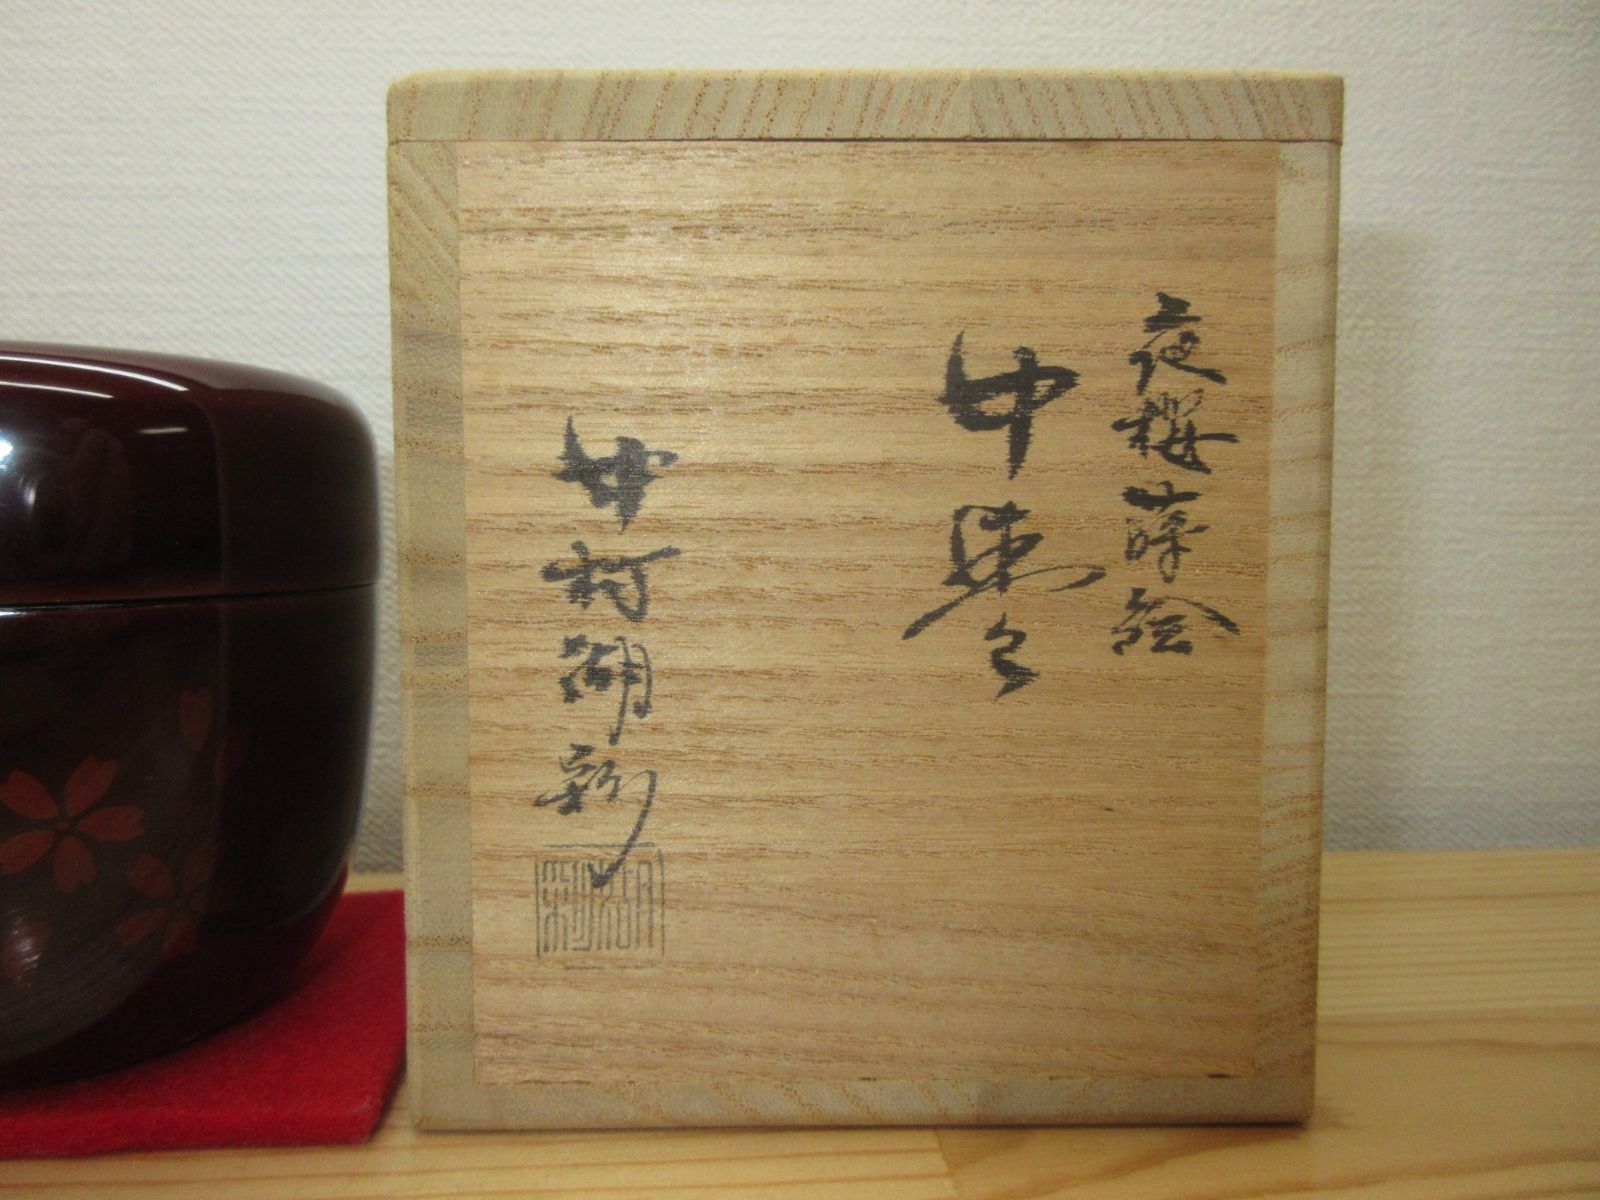 夜桜蒔絵
中棗
中村湖彩